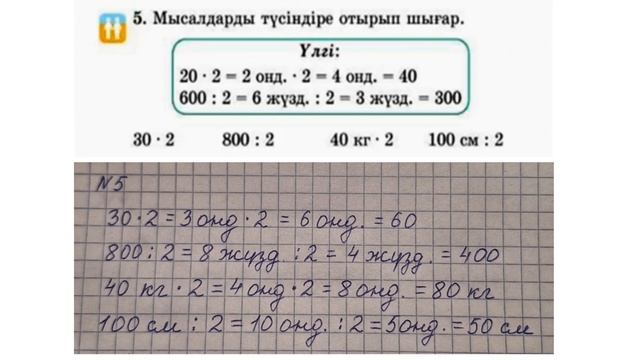 5. Мысалдарды түсіндіре отырып шығар.
Үлгі:
20 · 2 = 2 онд. · 2 = 4 онд. = 40
600 : 2 = 6 жүзд. : 2 = 3 жүзд. = 300
30 · 2 800 : 2 40 кг · 2 100 см : 2
№5
30 · 2 = 3 онд · 2 = 6 онд. = 60
800 : 2 = 8 жүзд. : 2 = 4 жүзд. = 400
40 кг · 2 = 4 онд · 2 = 8 онд. = 80 кг
100 см : 2 = 10 онд. : 2 = 5 онд. = 50 см